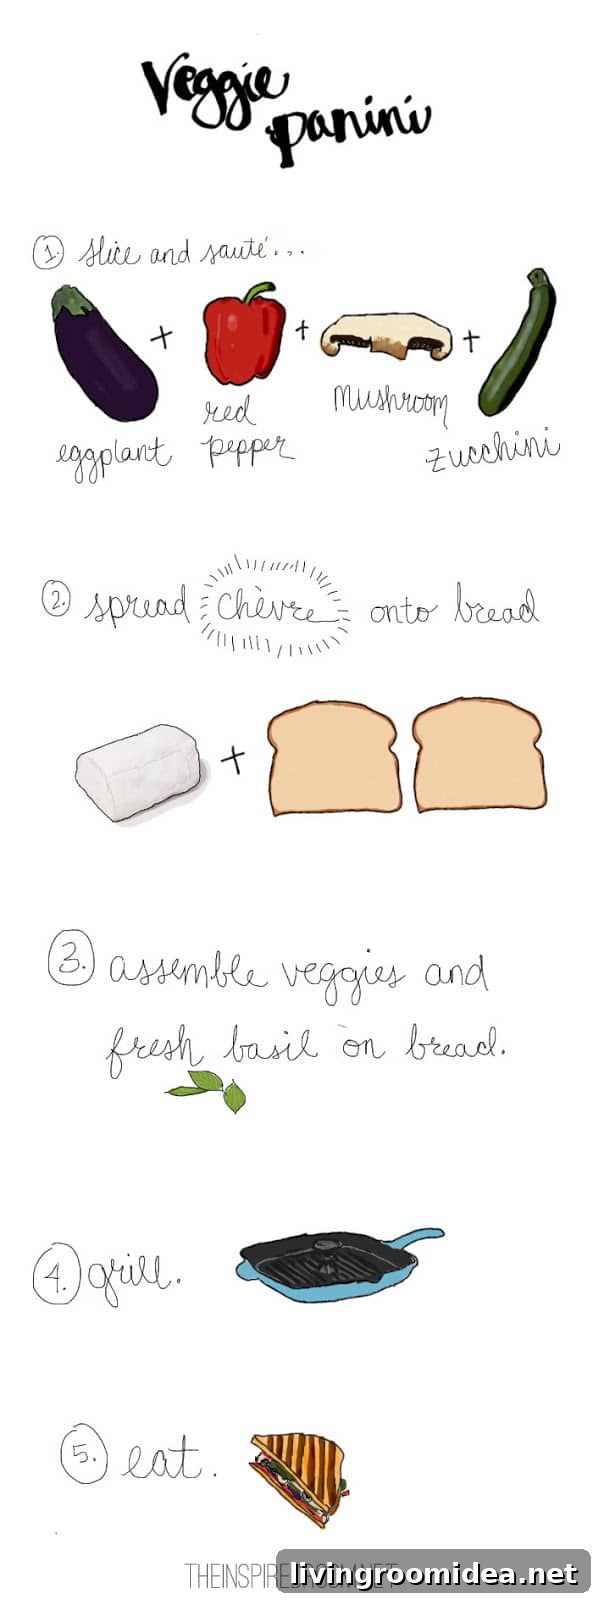 Veggie
panini
1. slice and sauté...
+ + +
eggplant
red
pepper
mushroom
zucchini
2. spread chèvre onto bread
+
3. assemble veggies and
fresh basil on bread.
4. grill.
5. eat.
livingroomidea.net